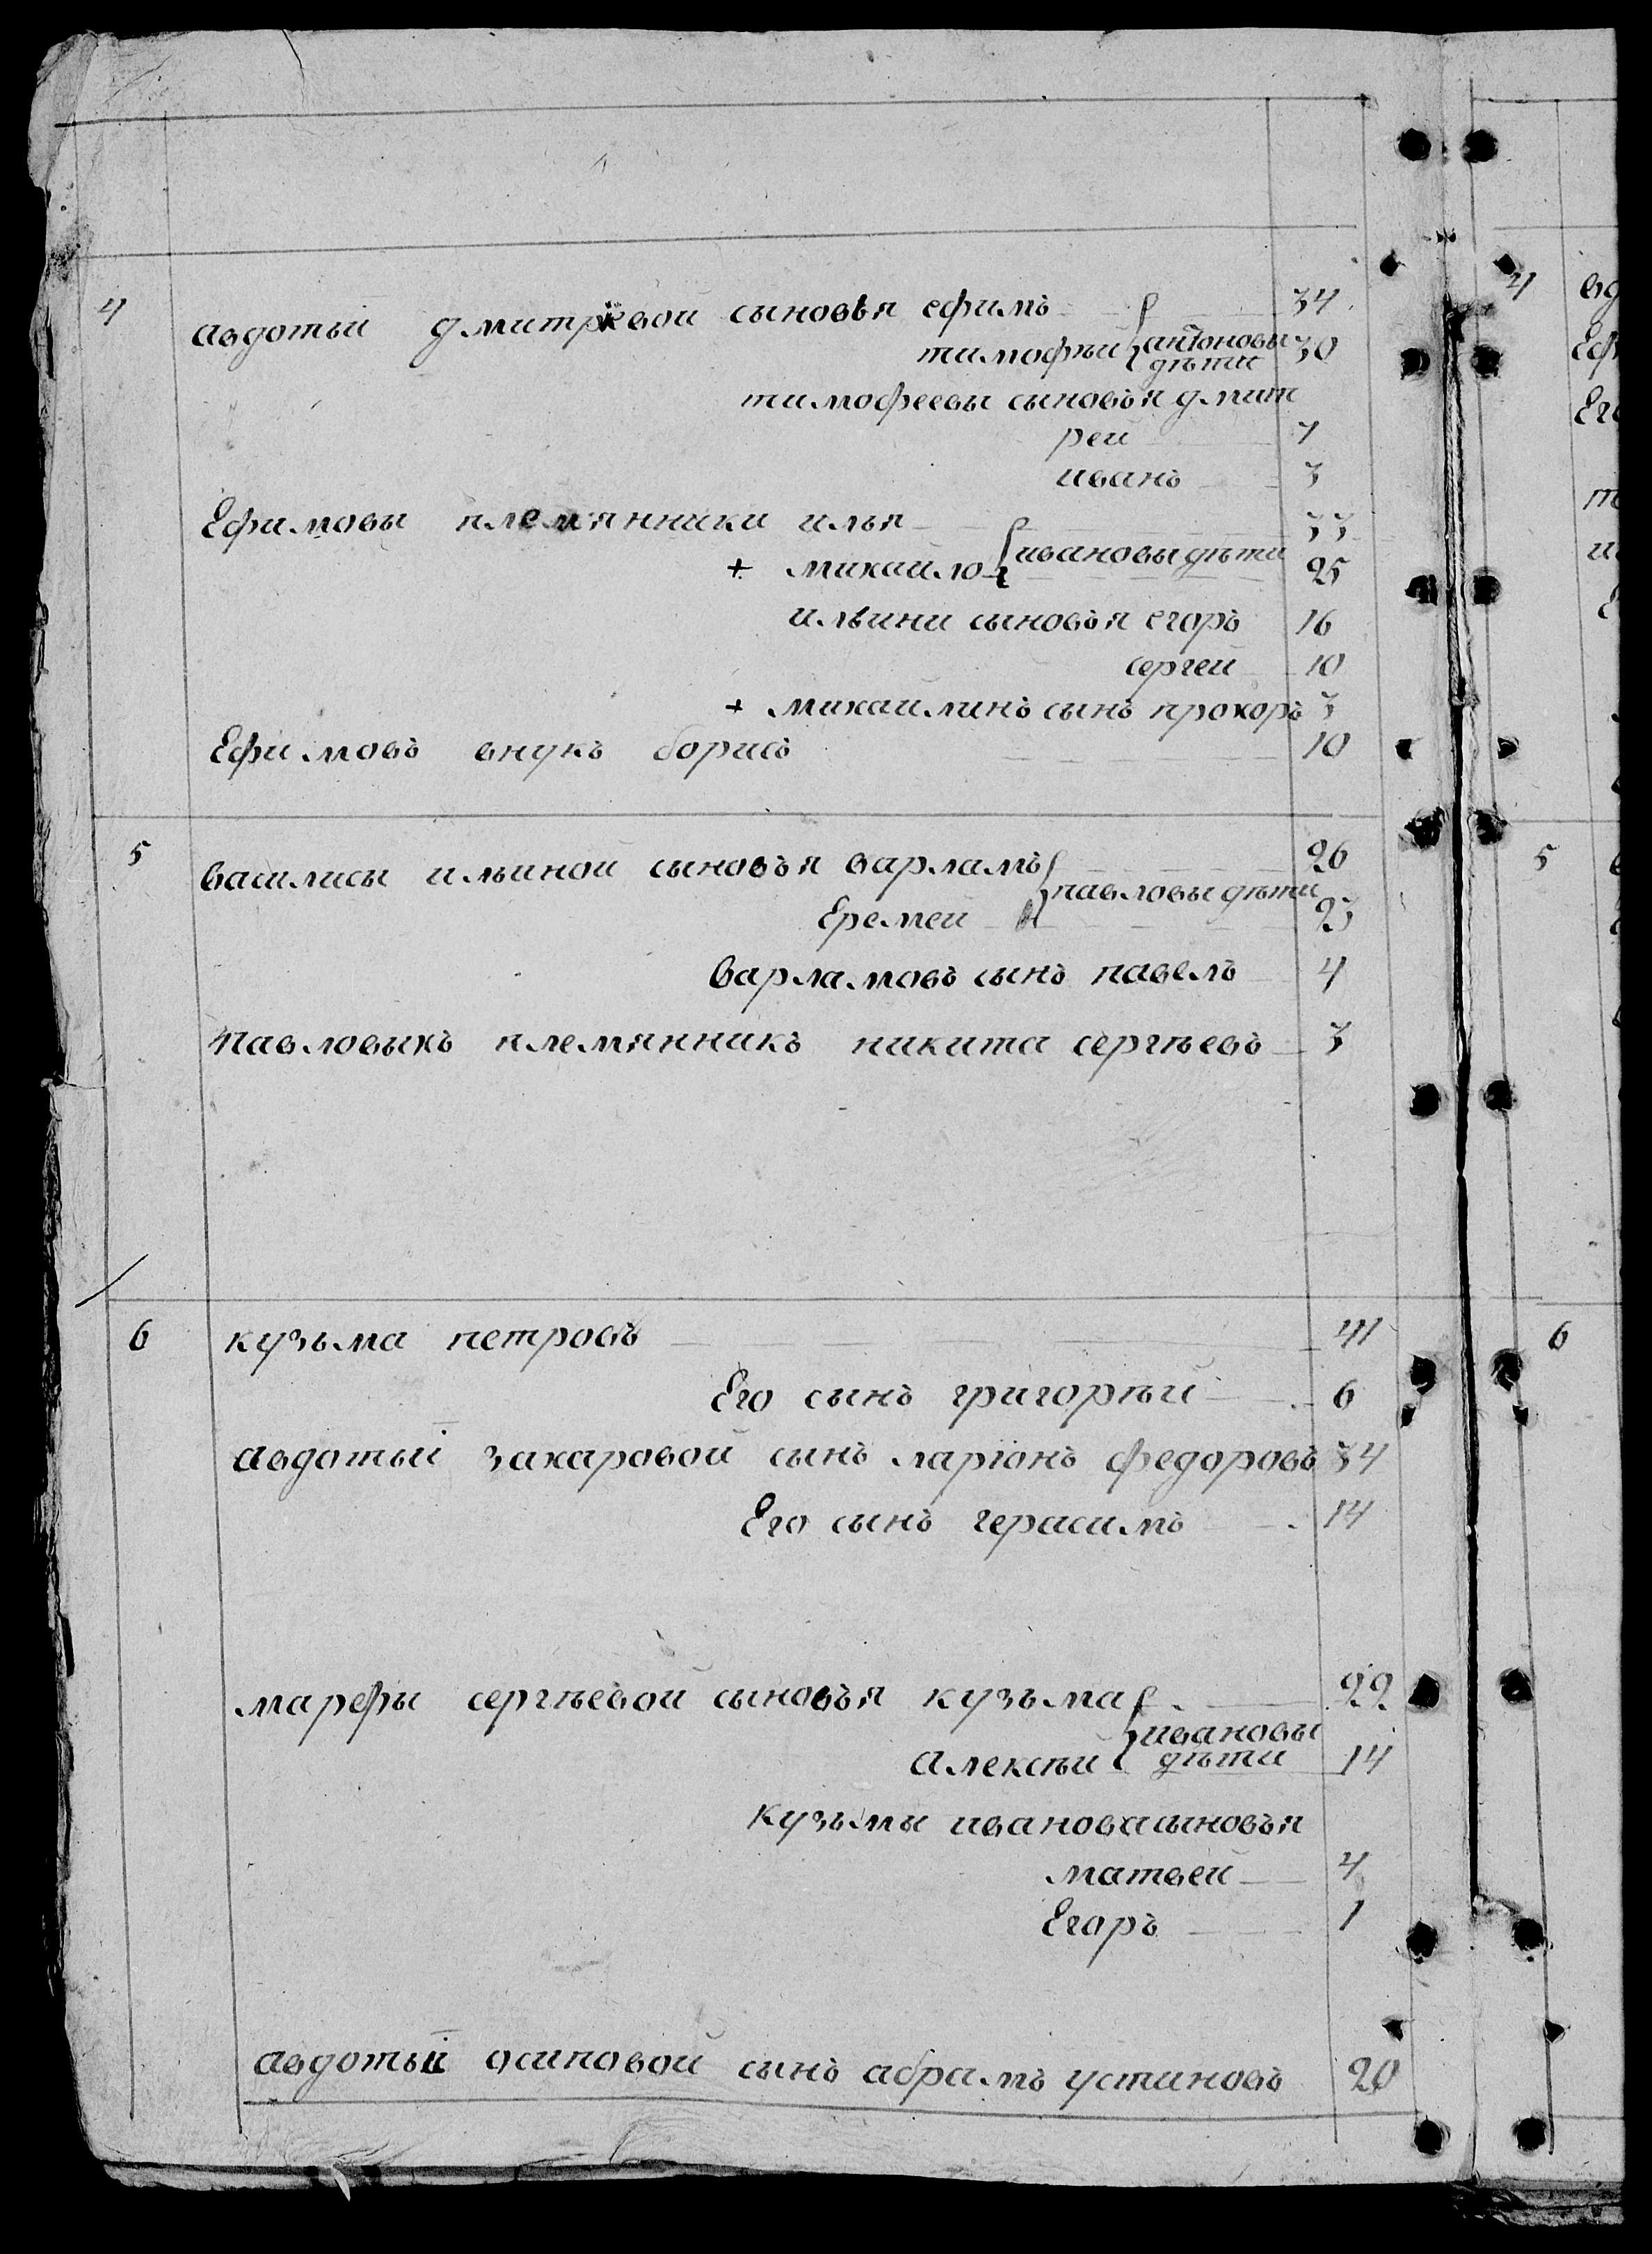 4 авдотьи дмитревой сыновья ефимъ 34
тимофѣй антоновы дѣти 30
тимофеевы сыновья дмит
рей 7
иванъ 3
Ефимовы племянники илья 33
+ михайло ивановы дѣти 25
ильини сыновья егоръ 16
сергей 10
+ михайлинъ сынъ прохоръ 3
Ефимовъ внукъ борисъ 10
5 василисы ильиной сыновья варламъ 26
Еремей павловы дѣти 23
варламовъ сынъ павелъ 4
павловыхъ племянникъ никита сергѣевъ 3
6 кузьма петровъ 41
Его сынъ григорѣй 6
авдотьи захаровой сынъ ларионъ федоровъ 34
Его сынъ герасимъ 14
марефы сергѣевой сыновья кузьма 22
Алексѣй ивановы дѣти 14
кузьмы иванова сыновья
матвей 4
Егоръ 1
авдотьи осиповой сынъ абрамъ устиновъ 20
4
5
6